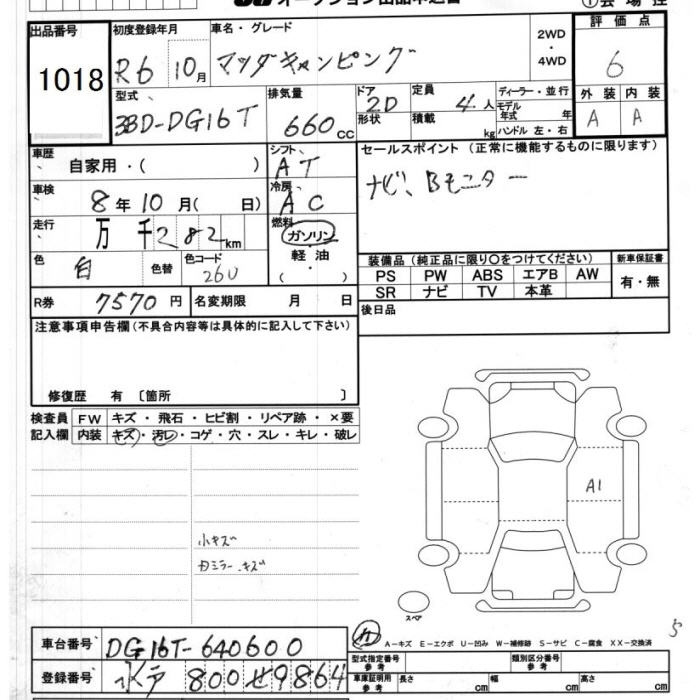 出品番号
1018
初度登録年月
R6 10月
車名・グレード
マツダキャンピング
2WD
・
4WD
評価点
6
型式
3BD-DG16T
排気量
660 cc
ドア
2D
形状
定員
4 人
積載
kg
ディーラー・並行
モデル年式 年
ハンドル 左・右
外装 内装
A A
車歴
自家用・( )
シフト
AT
セールスポイント (正常に機能するものに限ります)
ナビ、Bモニター
車検
8年10月( 日)
冷房
AC
走行
万千282km
燃料
ガソリン
軽・油
( ・ )
色
白
色替
色コード
26U
装備品 (純正品に限り○をつけてください)
新車保証書
PS PW ABS エアB AW
SR ナビ TV 本革
有・無
R券
7570円
名変期限 月 日
後日品
注意事項申告欄 (不具合内容等は具体的に記入して下さい)
修復歴 有 〔箇所 〕
検査員
記入欄
FW キズ・飛石・ヒビ割・リペア跡・×要
内装 キズ・汚レ・コゲ・穴・スレ・キレ・破レ
小キズ
カミラーキズ
A1
スペア
A-キズ E-エクボ U-凹み W-補修跡 S-サビ C-腐食 XX-交換済
5
車台番号
DG16T-640600
登録番号
水戸 800 せ9864
型式指定番号
参考
類別区分番号
参考
車庫証明用
参考
長さ cm
幅 cm
高さ cm